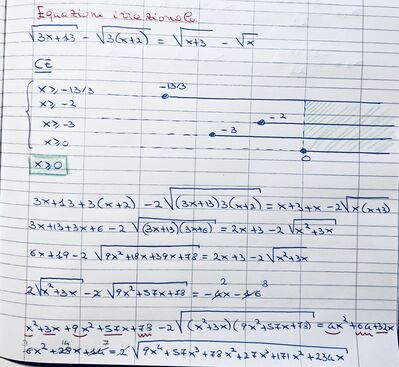 Equazione irrazionale
√3x+13 - √3(x+2) = √x+3 - √x
CE
x ≥ -13/3
x ≥ -2
x ≥ -3
x ≥ 0
-13/3
-2
-3
0
x ≥ 0
3x+13+3(x+2) -2√(3x+13)3(x+2) = x+3+x-2√x(x+3)
3x+13+3x+6-2√(3x+13)(3x+6) = 2x+3-2√x²+3x
6x+19-2√9x²+18x+39x+78 = 2x+3-2√x²+3x
2√x²+3x - 2√9x²+57x+78 = -4x-16
2 8
x²+3x+9x²+57x+78 -2√(x²+3x)(9x²+57x+78) =
3 14 7
√9x⁴+57x³+78x²+27x³+171x²+234x